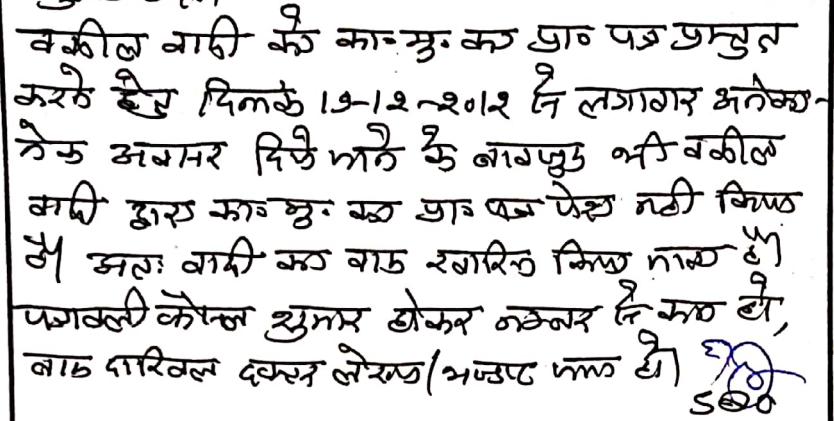 वकील वादी को का॰ मु॰ का प्रा॰ पत्र प्रस्तुत
करने हेतु दिनांक 19-12-2012 से लगातार अनेका-
नेक अवसर दिये जाने के बावजुद भी वकील
वादी द्वारा का॰ मु॰ का प्रा॰ पत्र पेश नही किया
है। अतः वादी का वाद खारिज किया जाता है।
पत्रावली फैसल शुमार होकर नम्बर से कम हो,
बाद दाखिल दफ्तर लेख्य/ भण्डार जमा हो।
SDO